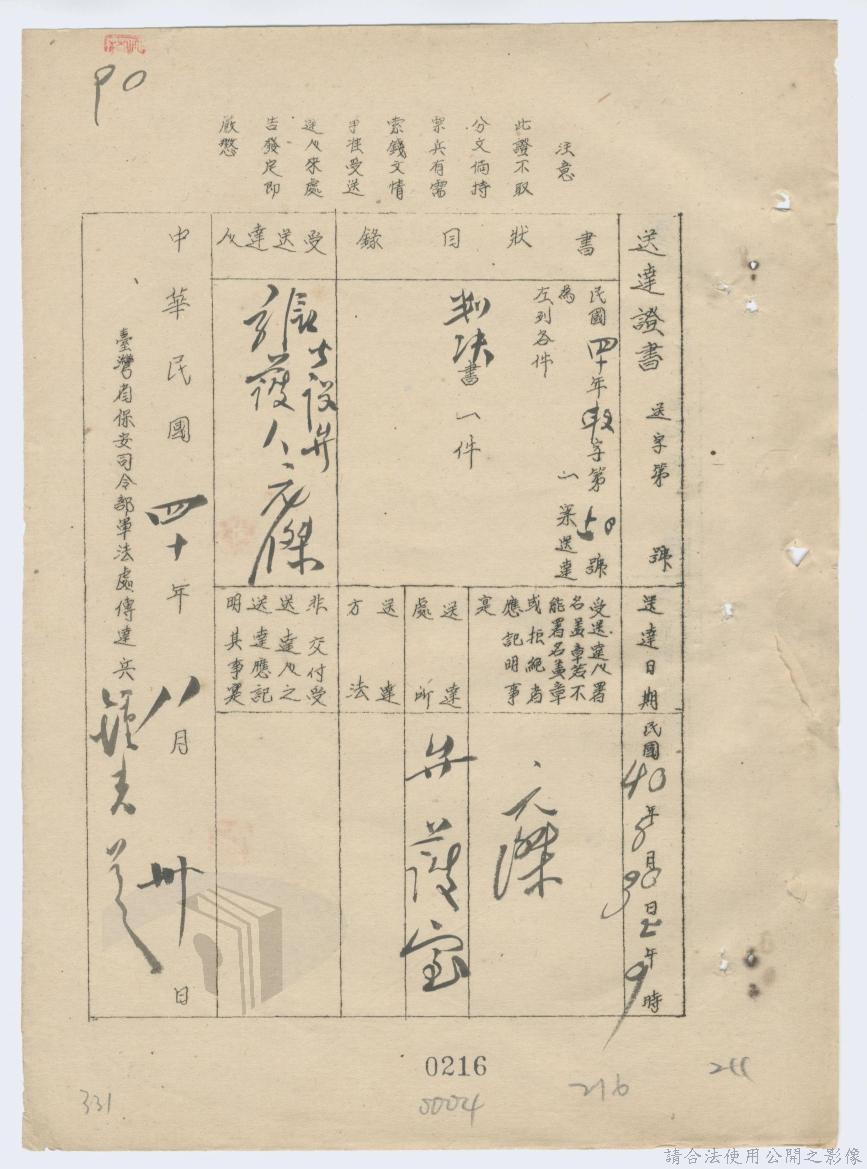 90
注意
此證不取
分文倘持
票兵有需
索錢文情
事准受送
達人來處
告發定即
嚴懲
送達證書 送字第 號
送達日期 民國40年8月30日上午9時
書狀目錄
民國四十年 字第50號
為 一案送達
左列各件
判決書一件
受送達人署
名蓋章若不
能署名蓋章
或拒絕者
應記明事
實
元傑
送達處所
辯護室
送達方法
受送達人
辯護人 元傑
非交付受
送達人之
送達應記
明其事實
中華民國四十年八月卅日
臺灣省保安司令部軍法處傳達兵
0216
331
0004
216
請合法使用公開之影像